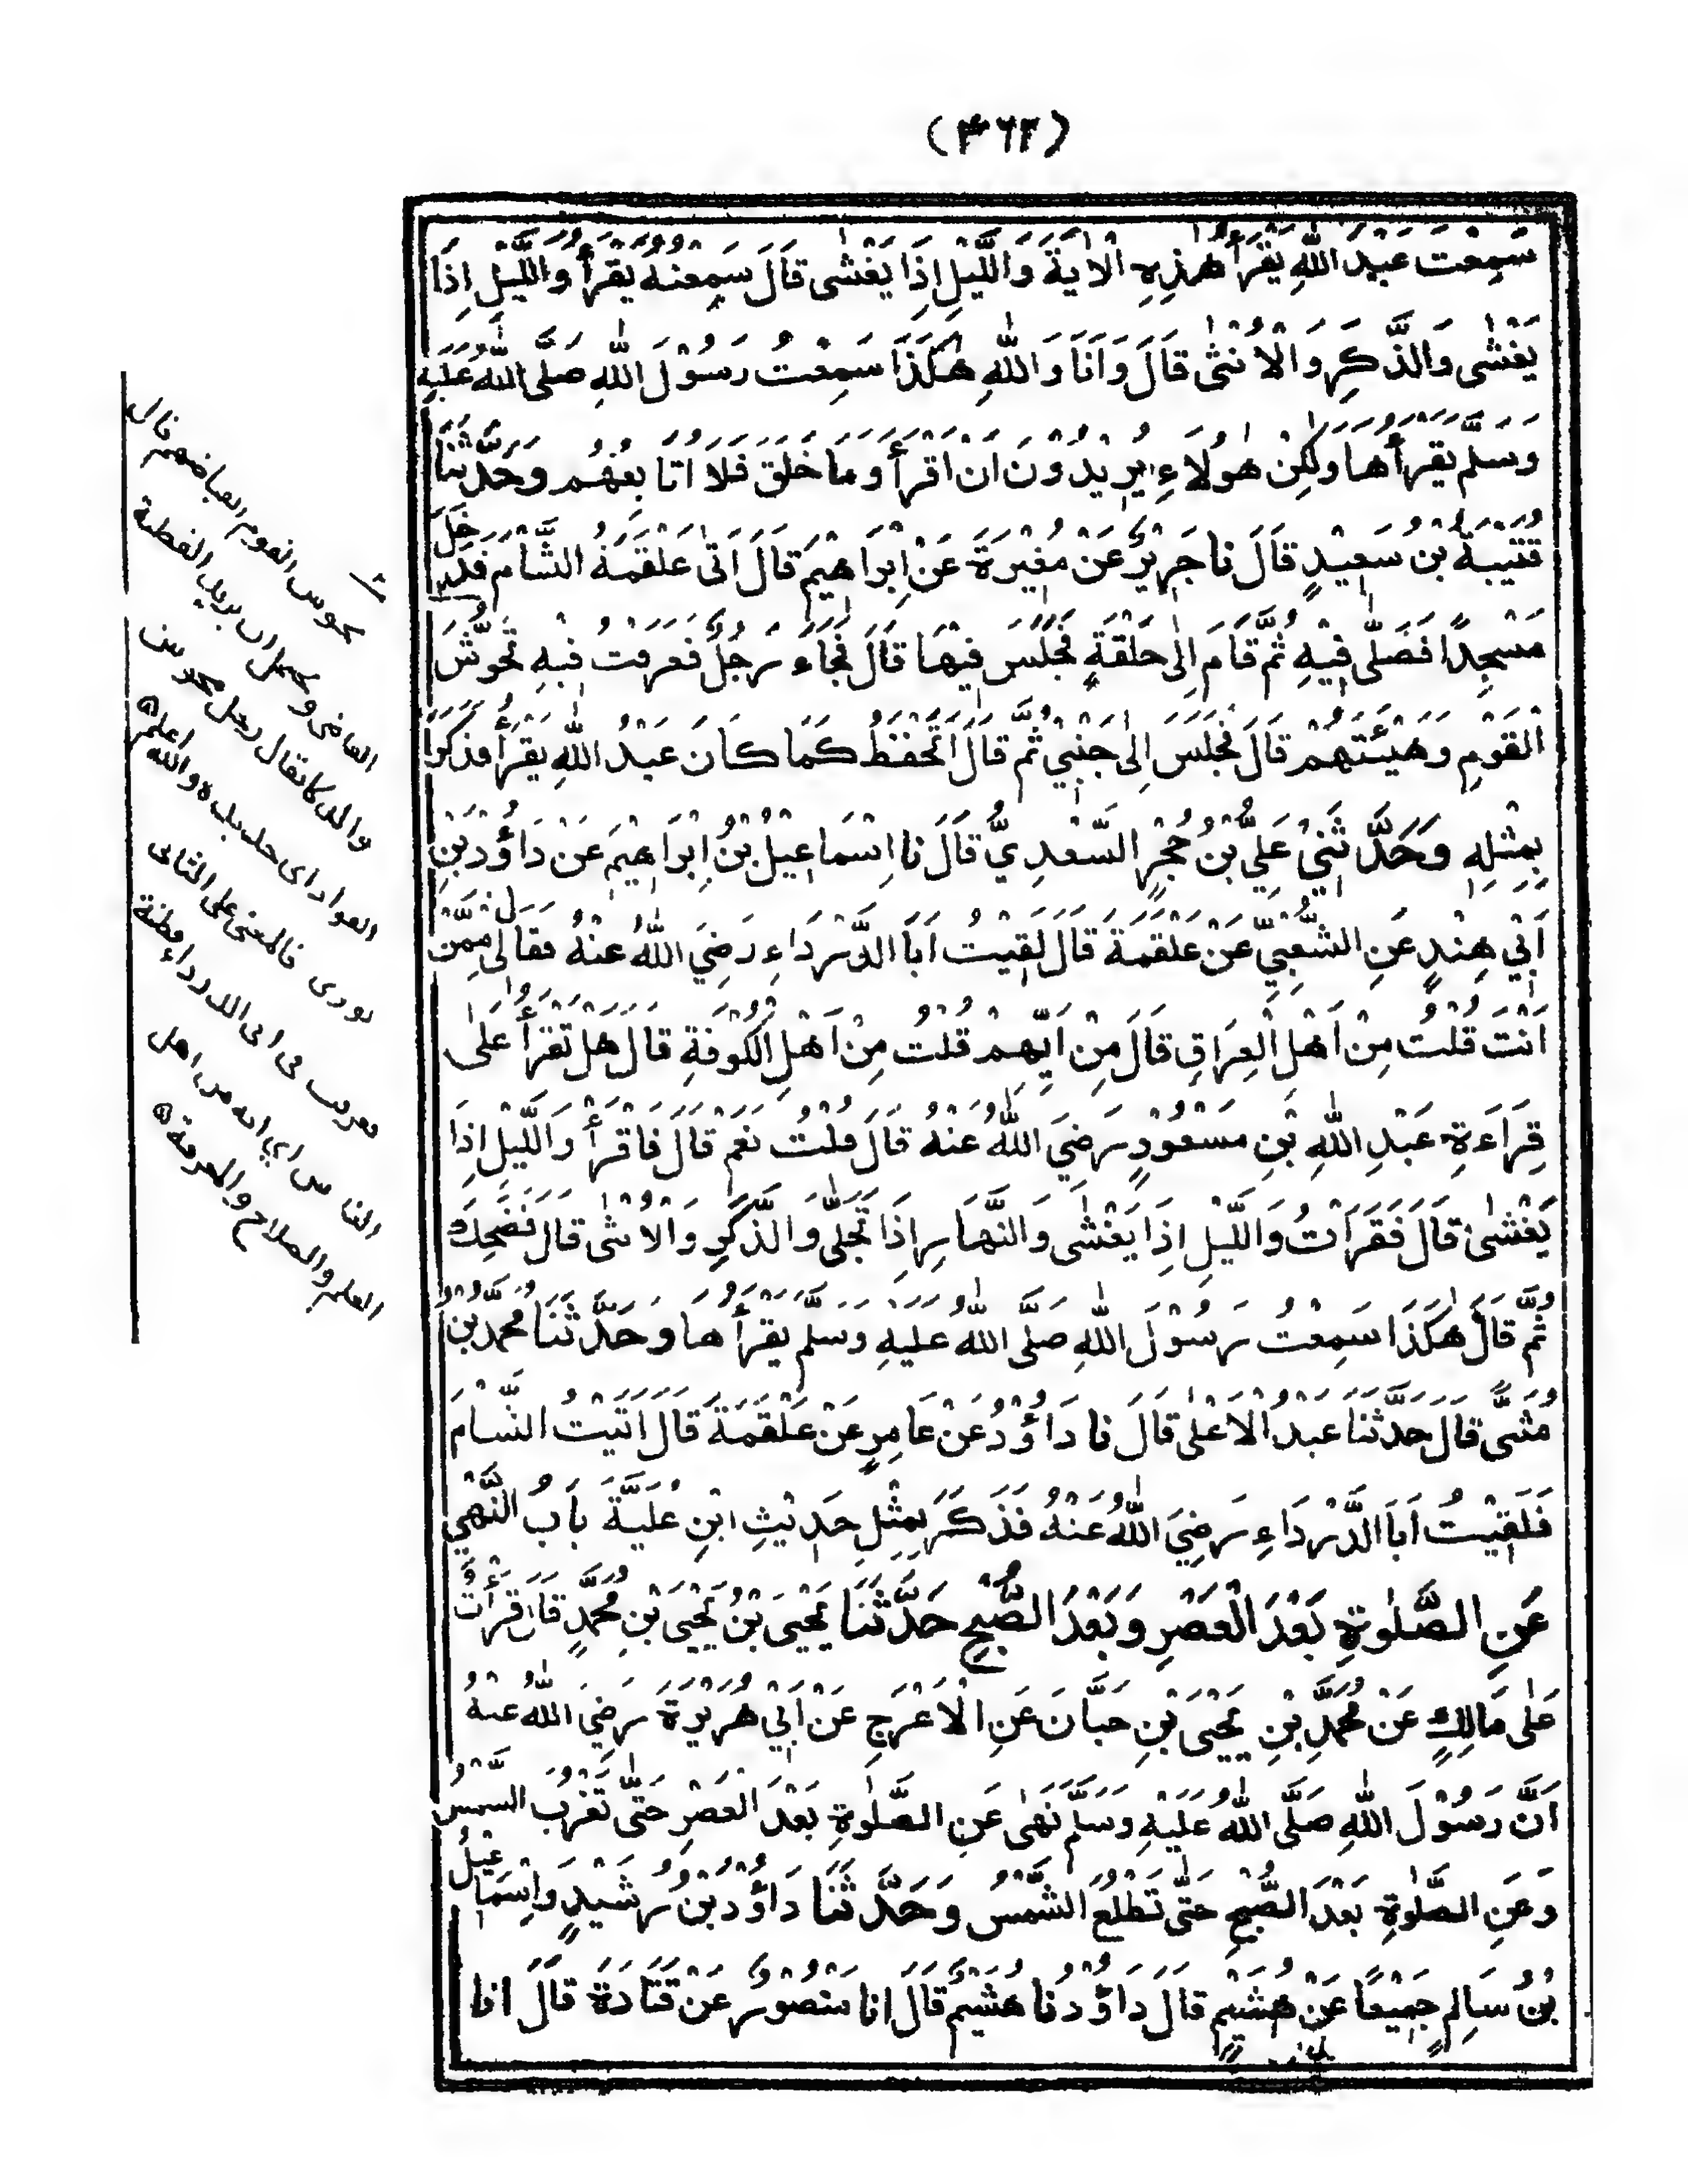 (٤٦٢)
سَمِعْتَ عَبْدَ اللّٰهِ يَقْرَأُ هٰذِهِ الْاٰيَةَ وَاللَّيْلِ اِذَا يَغْشٰى قَالَ سَمِعْتُهُ يَقْرَأُ وَاللَّيْلِ اِذَا
يَغْشٰى وَالذَّكَرِ وَالْاُنْثٰى قَالَ وَاَنَا وَاللّٰهِ هٰكَذَا سَمِعْتُ رَسُوْلَ اللّٰهِ صَلَّى اللّٰهُ عَلَيْهِ
وَسَلَّمَ يَقْرَأُهَا وَلٰكِنْ هٰؤُلَاءِ يُرِيْدُوْنَ اَنْ اَقْرَأَ وَمَا خَلَقَ فَلَا اُتَابِعُهُمْ وَحَدَّثَنَا
قُتَيْبَةُ بْنُ سَعِيْدٍ قَالَ نَا جَرِيْرٌ عَنْ مُغِيْرَةَ عَنْ اِبْرَاهِيْمَ قَالَ اَتٰى عَلْقَمَةُ الشَّامَ فَدَخَلَ
مَسْجِدًا فَصَلّٰى فِيْهِ ثُمَّ قَامَ اِلٰى حَلْقَةٍ فَجَلَسَ فِيْهَا قَالَ فَجَاءَ رَجُلٌ فَعَرَفْتُ فِيْهِ تَحَوُّشَ
الْقَوْمِ وَهَيْئَتَهُمْ قَالَ فَجَلَسَ اِلٰى جَنْبِيْ ثُمَّ قَالَ اَتَحْفَظُ كَمَا كَانَ عَبْدُ اللّٰهِ يَقْرَأُ فَذَكَرَ
بِمِثْلِهِ وَحَدَّثَنِيْ عَلِيُّ بْنُ حُجْرٍ السَّعْدِيُّ قَالَ نَا اِسْمَاعِيْلُ بْنُ اِبْرَاهِيْمَ عَنْ دَاوٗدَ بْنِ
اَبِيْ هِنْدٍ عَنِ الشَّعْبِيِّ عَنْ عَلْقَمَةَ قَالَ لَقِيْتُ اَبَا الدَّرْدَاءِ رَضِيَ اللّٰهُ عَنْهُ فَقَالَ لِيْ مِمَّنْ
اَنْتَ قُلْتُ مِنْ اَهْلِ الْعِرَاقِ قَالَ مِنْ اَيِّهِمْ قُلْتُ مِنْ اَهْلِ الْكُوْفَةِ قَالَ هَلْ تَقْرَأُ عَلٰى
قِرَاءَةِ عَبْدِ اللّٰهِ بْنِ مَسْعُوْدٍ رَضِيَ اللّٰهُ عَنْهُ قَالَ قُلْتُ نَعَمْ قَالَ فَاقْرَأْ وَاللَّيْلِ اِذَا
يَغْشٰى قَالَ فَقَرَأْتُ وَاللَّيْلِ اِذَا يَغْشٰى وَالنَّهَارِ اِذَا تَجَلّٰى وَالذَّكَرِ وَالْاُنْثٰى قَالَ فَضَحِكَ
ثُمَّ قَالَ هٰكَذَا سَمِعْتُ رَسُوْلَ اللّٰهِ صَلَّى اللّٰهُ عَلَيْهِ وَسَلَّمَ يَقْرَأُهَا وَحَدَّثَنَا مُحَمَّدُ بْنُ
مُثَنّٰى قَالَ حَدَّثَنَا عَبْدُ الْاَعْلٰى قَالَ نَا دَاوٗدُ عَنْ عَامِرٍ عَنْ عَلْقَمَةَ قَالَ اَتَيْتُ الشَّامَ
فَلَقِيْتُ اَبَا الدَّرْدَاءِ رَضِيَ اللّٰهُ عَنْهُ فَذَكَرَ بِمِثْلِ حَدِيْثِ ابْنِ عُلَيَّةَ بَابُ النَّهْيِ
عَنِ الصَّلٰوةِ بَعْدَ الْعَصْرِ وَبَعْدَ الصُّبْحِ حَدَّثَنَا يَحْيَى بْنُ يَحْيَى بْنِ مُحَمَّدٍ قَالَ قَرَأْتُ
عَلٰى مَالِكٍ عَنْ مُحَمَّدِ بْنِ يَحْيَى بْنِ حَبَّانَ عَنِ الْاَعْرَجِ عَنْ اَبِيْ هُرَيْرَةَ رَضِيَ اللّٰهُ عَنْهُ
اَنَّ رَسُوْلَ اللّٰهِ صَلَّى اللّٰهُ عَلَيْهِ وَسَلَّمَ نَهٰى عَنِ الصَّلٰوةِ بَعْدَ الْعَصْرِ حَتّٰى تَغْرُبَ الشَّمْسُ
وَعَنِ الصَّلٰوةِ بَعْدَ الصُّبْحِ حَتّٰى تَطْلُعَ الشَّمْسُ وَحَدَّثَنَا دَاوٗدُ بْنُ رُشَيْدٍ وَاِسْمَاعِيْلُ
بْنُ سَالِمٍ جَمِيْعًا عَنْ هُشَيْمٍ قَالَ دَاوٗدُ نَا هُشَيْمٌ قَالَ اَنَا مَنْصُوْرٌ عَنْ قَتَادَةَ قَالَ اَنَا
تحوش القوم انقباضهم قال
القاضى ويحتمل ان يريد الفطنة
والذكا يقال رجل حوش
الفواد اى حديده والله اعلم
نووى فالمعنى على الثانى
فعرفت فى ابى الدرداء فطنة
الناس اي انه من اهل
العلم والصلاح والمعرفة